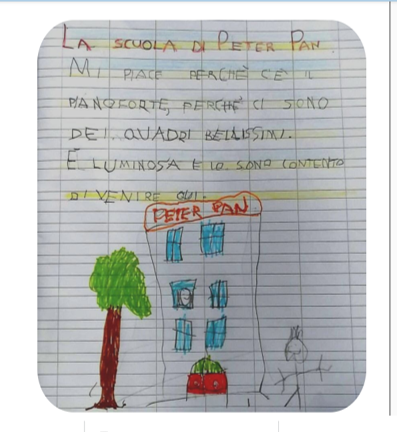 LA SCUOLA DI PETER PAN.
MI PIACE PERCHÈ C'È IL
PIANOFORTE, PERCHÈ CI SONO
DEI QUADRI BELLISSIMI.
È LUMINOSA E IO SONO CONTENTO
DI VENIRE QUI.
PETER PAN